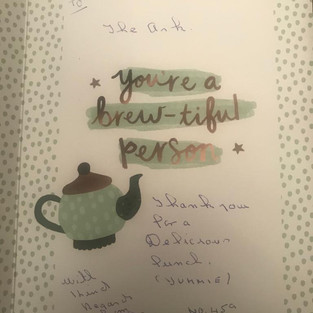 To
The Ark.
You're a
brew-tiful
person
Thank you
For a
Delicious
Lunch.
(YUMMIE)
With
Kind
Regards
From
No. 459